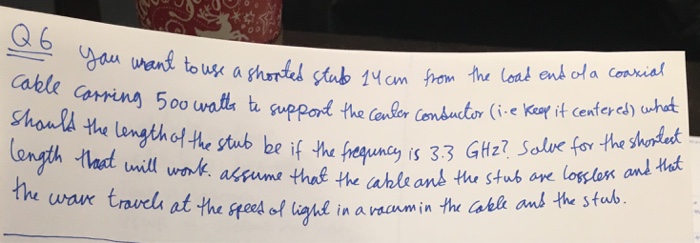 Q6 you want to use a shorted stub 14 cm from the load end of a coaxial
cable carring 500 watts to support the center conductor (i.e keep it centered) what
should the length of the stub be if the frequncy is 3.3 GHz? Solve for the shortest
length that will work. assume that the cable and the stub are lossless and that
the wave travels at the speed of light in a vacum in the cable and the stub.